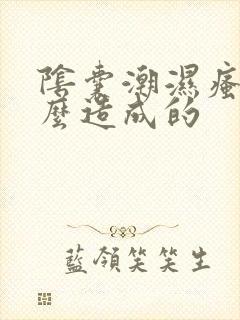 陰囊潮濕瘙
麼造成的
藍領笑笑生